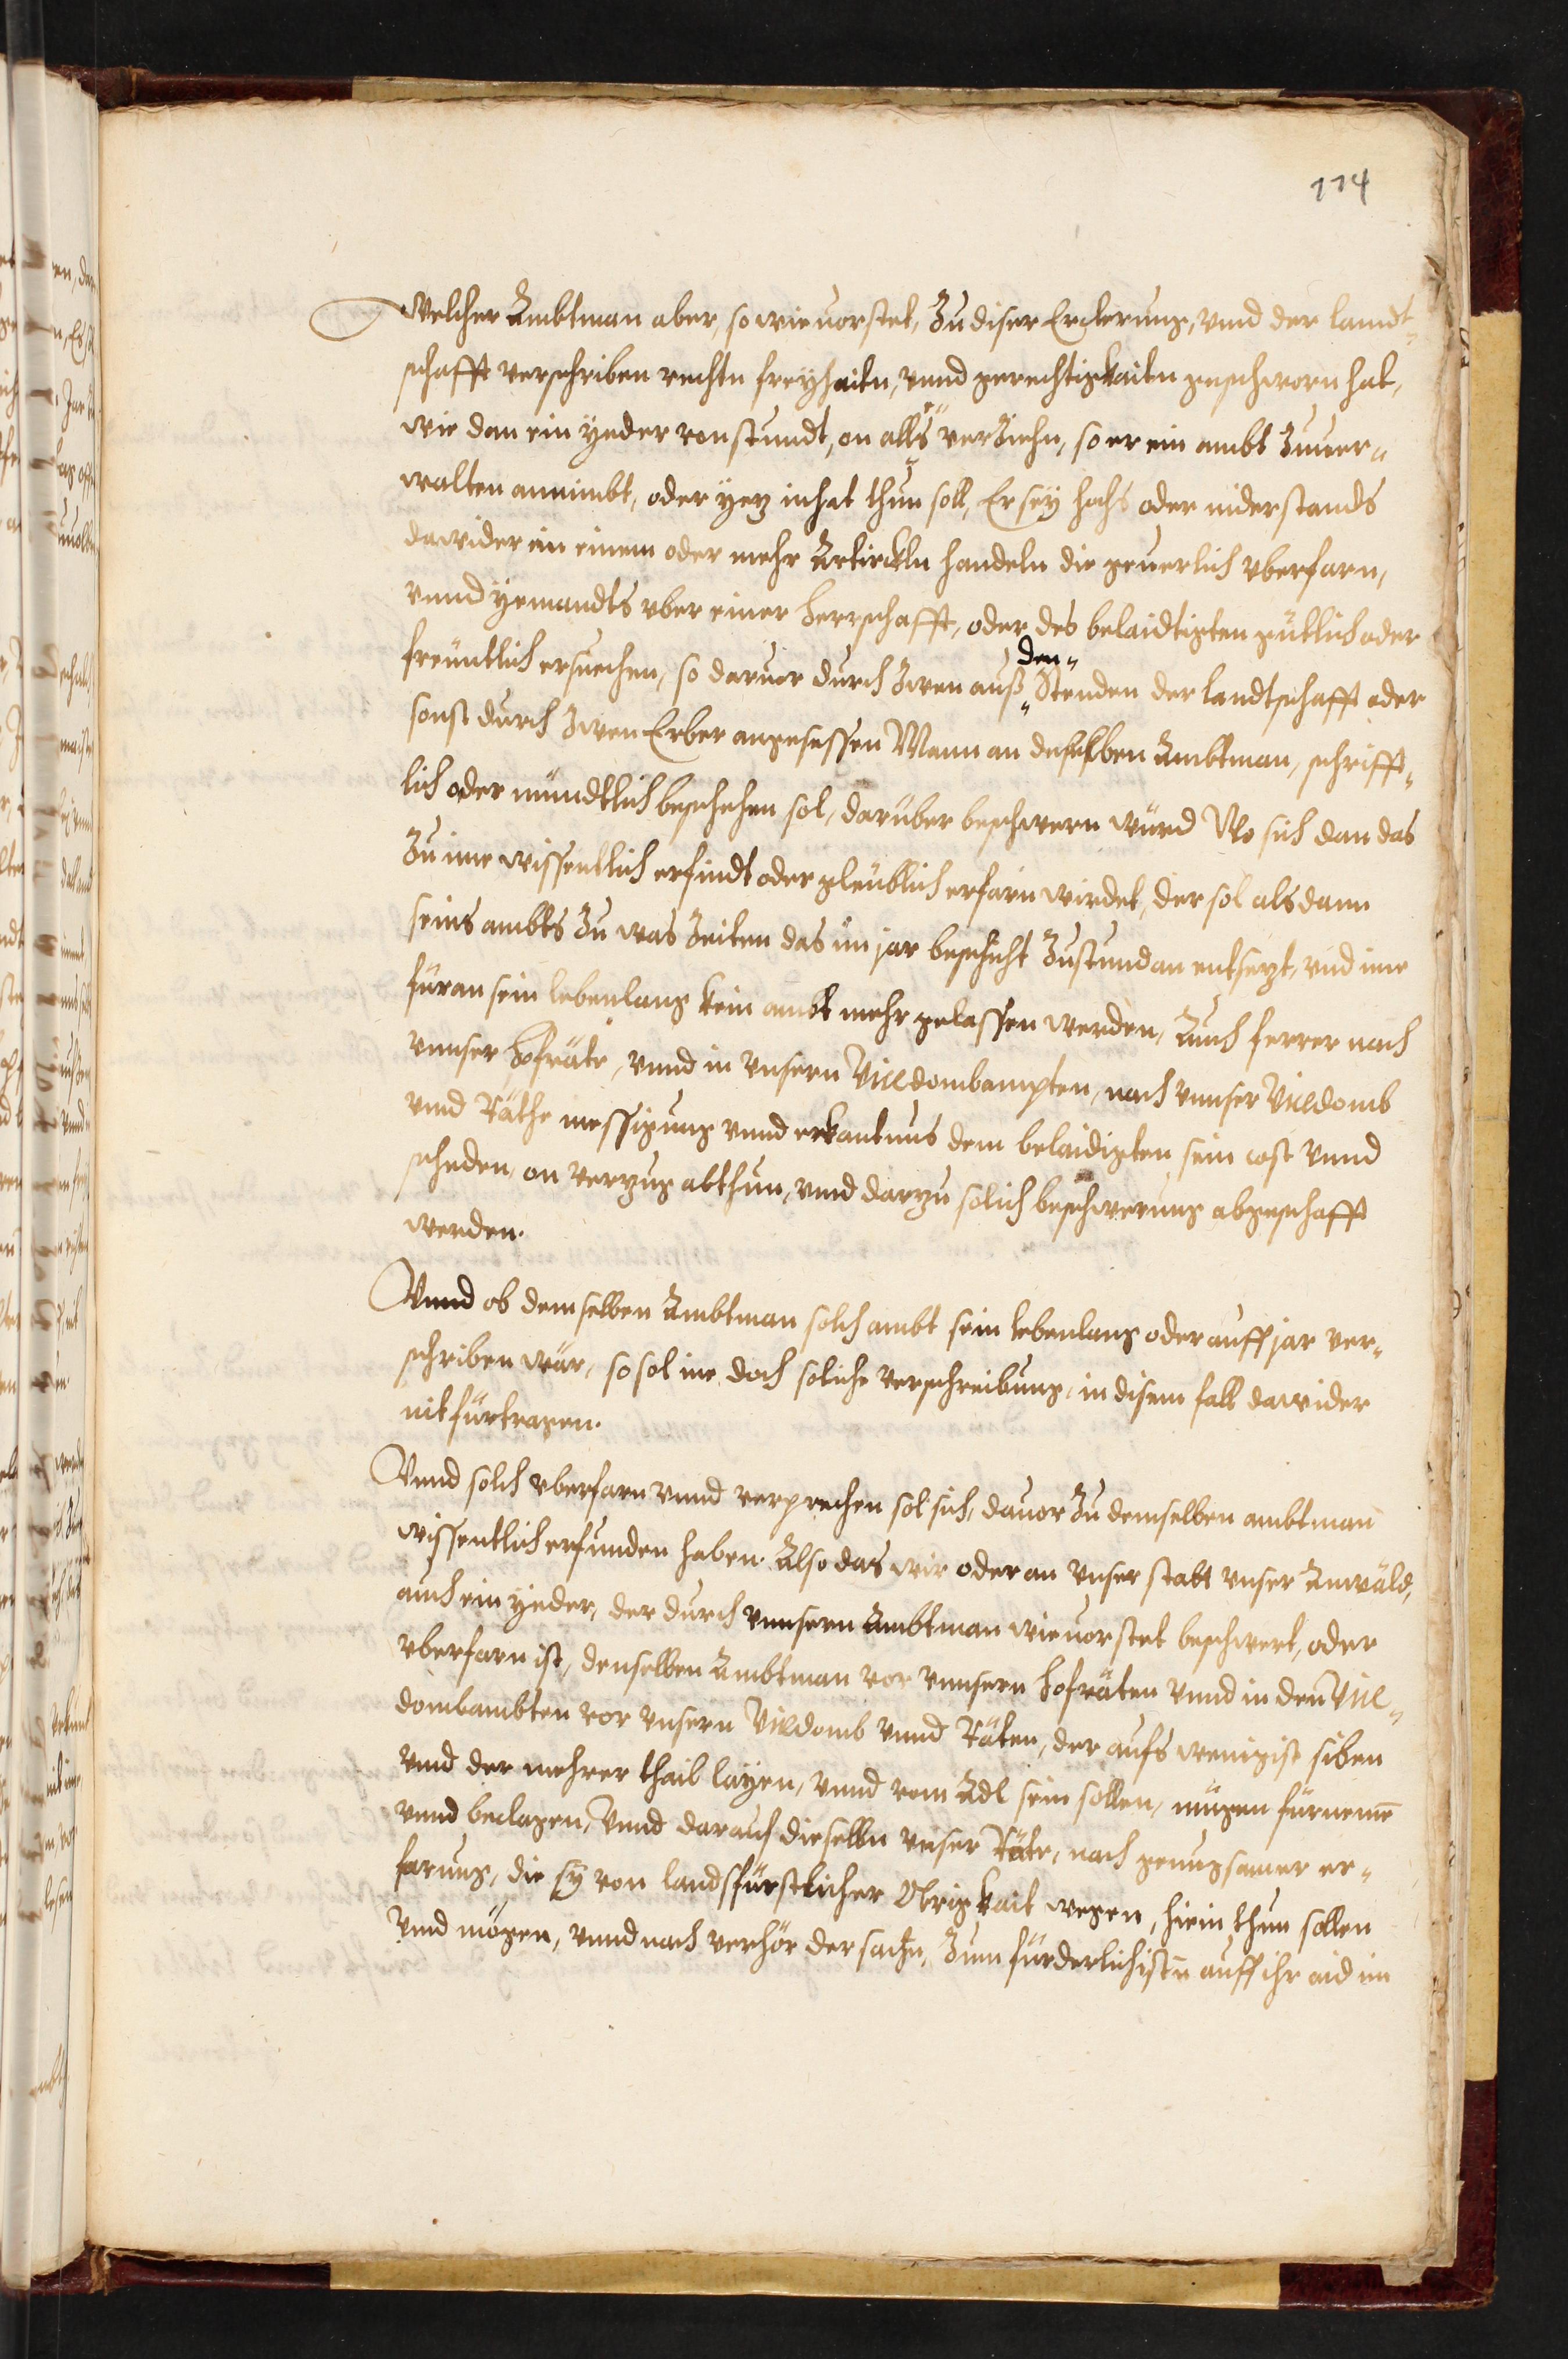 114
Welcher Ambtman aber, so wie uorstet, Zu diser Erclerung, vnnd der landt-
schafft verschriben rechtn freyhaitn, vnnd gerechtigkaitn geschworn hat,
wie dan ein yeder von stundt, on alls verZiehn, so er ein ambt Zuuer-
walten annimbt, oder yez inhat thun soll, Er sey hochs oder niderstands
dawider ein einem oder mehr Artickln handeln die geuerlich vberfarn,
vnnd yemandts vber einer herrschafft, oder des belaidtigten gütlich oder
freüntlich ersuechen, so daruor durch Zwen auß den Stenden der landtschafft oder
sonst durch Zwen Erber angesessen Mann an denselben Ambtman, schrifft-
lich oder mündtlich beschehen sol, darüber beschwern würd Wo sich dan das
Zu ime wissentlich erfindt oder gleüblich erfarn wirdet, der sol als dann
seins ambts Zu was Zeiten das im jar beschicht Zustundan entsezt, vnd ime
füran sein lebenlang kein ambt mehr gelassen werden, Auch ferrer nach
vnnser hofräte, vnnd in vnsern Vicedombampten, nach vnnser Vicedomb
vnnd Räthe messigung vnnd erkantnus dem belaidigten sein cost vnnd
scheden, on verzug abthun, vnnd darzu solich beschwerung abgeschafft
werden.
Vnnd ob demselben Ambtman solch ambt sein lebenlang oder auff jar ver-
schriben wär, so sol ime doch soliche verschreibung, in disem fall dawider
nit fürtragen.
Vnnd solch vberfarn vnnd verprechen sol sich, dauor Zu demselben ambtman
wissentlich erfunden haben. Also das wir oder an vnser statt vnser Anwäld,
auch ein yeder, der durch vnnsern Ambtman wie uorstet beschwert, oder
vberfarn ist, denselben Ambtman vor vnnsern hofräten vnnd in den Vice-
dombambten vor vnsern Vicedomb vnnd Räten, der aufs wenigist siben
vnnd der mehrer thail layen, vnnd vom Adl sein sollen, mügen fürnemē
vnnd beclagen, Vnnd darauf dieselbn vnser Räte, nach genugsamer er-
farung, die sy von landsfürstlicher Obrigkait wegen, hierin thun sollen
Vnnd mögen, vnnd nach verhör der sachn, Zum fürderlichistn auff ihr aid im